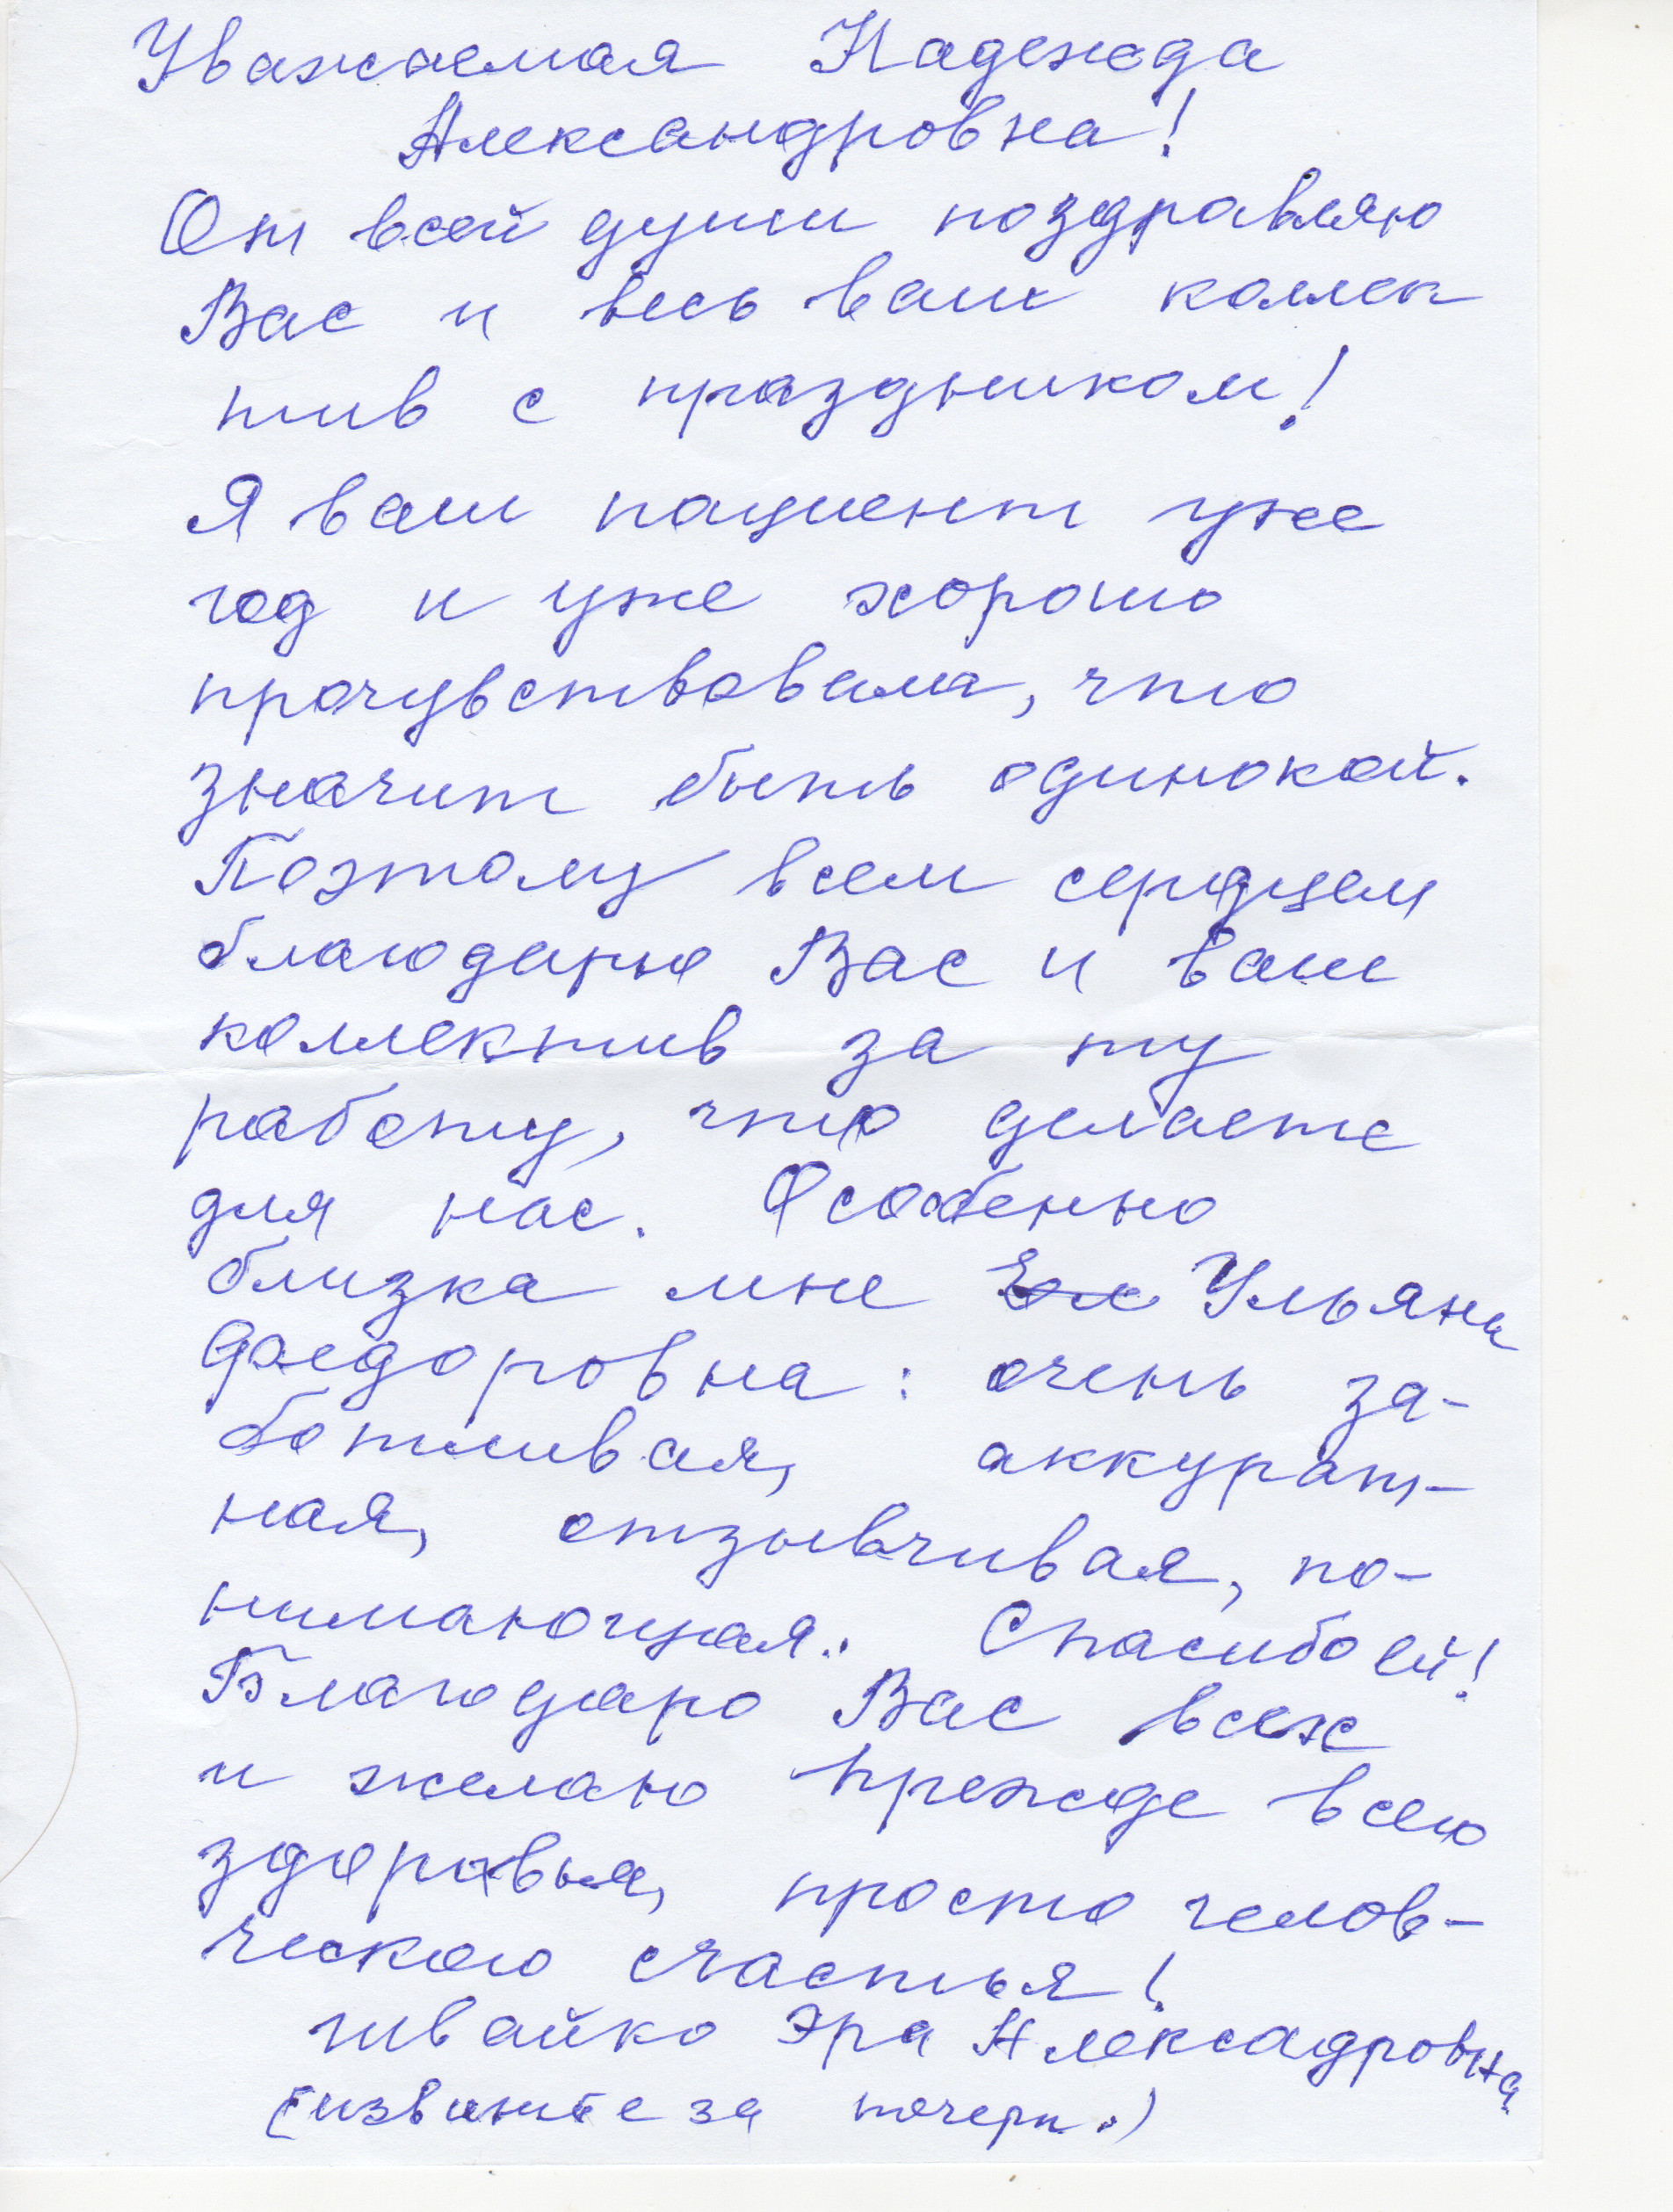 Уважаемая Надежда
Александровна!
От всей души поздравляю
Вас и весь ваш коллек
тив с праздником!
Я ваш пациент уже
год и уже хорошо
прочувствовала, что
значит быть одинокой.
Поэтому всем сердцем
благодарю Вас и ваш
коллектив за ту
работу, что делаете
для нас. Особенно
близка мне Ульяна
Федоровна: очень за-
ботливая, аккурат-
ная, отзывчивая, по-
нимающая. Спасибо ей!
Благодарю Вас всех
и желаю прежде всего
здоровья, просто челов-
ческого счастья!
Швайко Эра Алексадровна
(извините за почерк.)